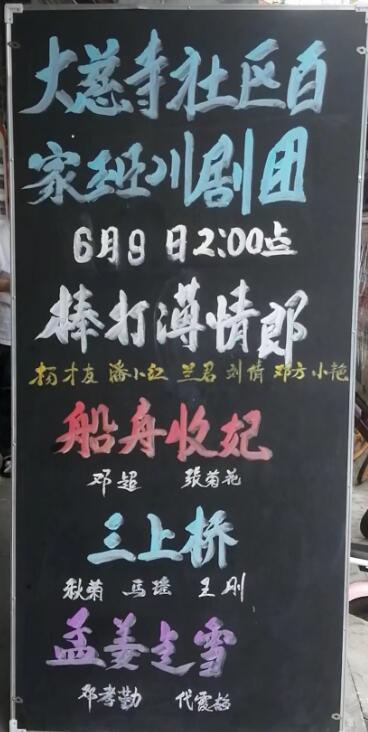 大慈寺社区百
家班川剧团
6月9日2:00点
棒打薄情郎
杨才友 潘小红 兰君 刘倩 邓方小艳
船舟收妃
邓超 张菊花
三上桥
秋菊 马瑶 王刚
孟姜走雪
邓孝勤 代霞